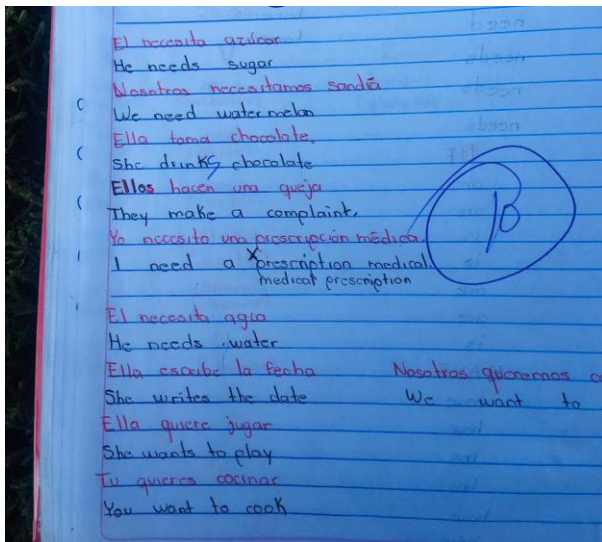 El necesita azúcar
He needs sugar
Nosotros necesitamos sandía
We need watermelon
Ella toma chocolate.
She drinks chocolate
Ellos hacen una queja
They make a complaint.
Yo necesito una prescripción médica.
I need a prescription medical.
medical prescription
El necesita agua
He needs water
Ella escribe la fecha
She writes the date
Ella quiere jugar
She wants to play
Tu quieres cocinar
You want to cook
Nosotros queremos
We want to